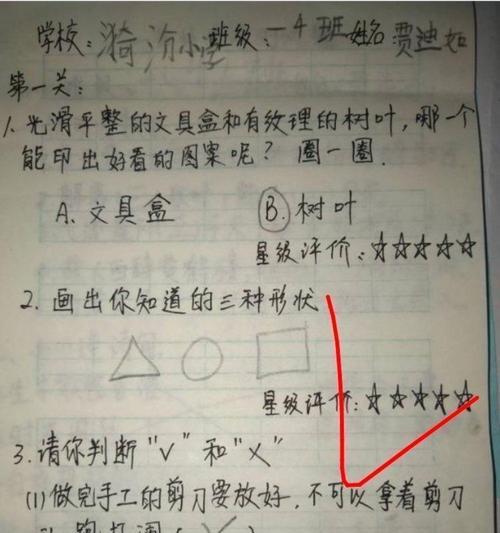 学校：漪汾小学 班级：一4班 姓名：贾迪如
第一关：
1. 光滑平整的文具盒和有纹理的树叶，哪一个
能印出好看的图案呢？ 圈一圈.
A. 文具盒 B. 树叶
星级评价：☆☆☆☆☆
2. 画出你知道的三种形状
星级评价：☆☆☆☆☆
3. 请你判断"√"和"×"
(1) 做完手工的剪刀要放好，不可以拿着剪刀